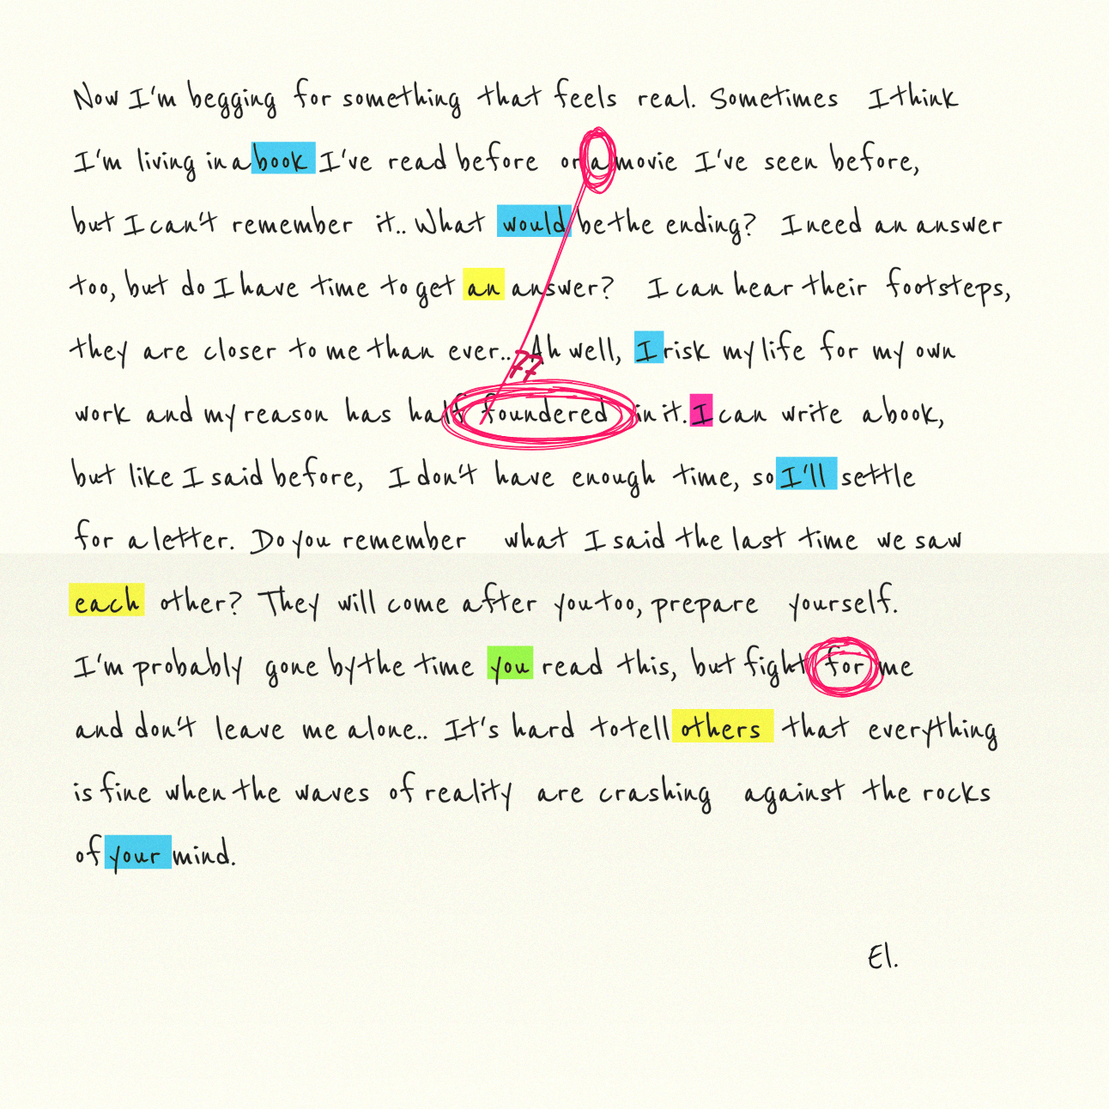 Now I'm begging for something that feels real. Sometimes I think
I'm living in a book I've read before or a movie I've seen before,
but I can't remember it.. What would be the ending? I need an answer
too, but do I have time to get an answer? I can hear their footsteps,
they are closer to me than ever.. Ah well, I risk my life for my own
work and my reason has half foundered in it. I can write a book,
but like I said before, I don't have enough time, so I'll settle
for a letter. Do you remember what I said the last time we saw
each other? They will come after you too, prepare yourself.
I'm probably gone by the time you read this, but fight for me
and don't leave me alone.. It's hard to tell others that everything
is fine when the waves of reality are crashing against the rocks
of your mind.
El.